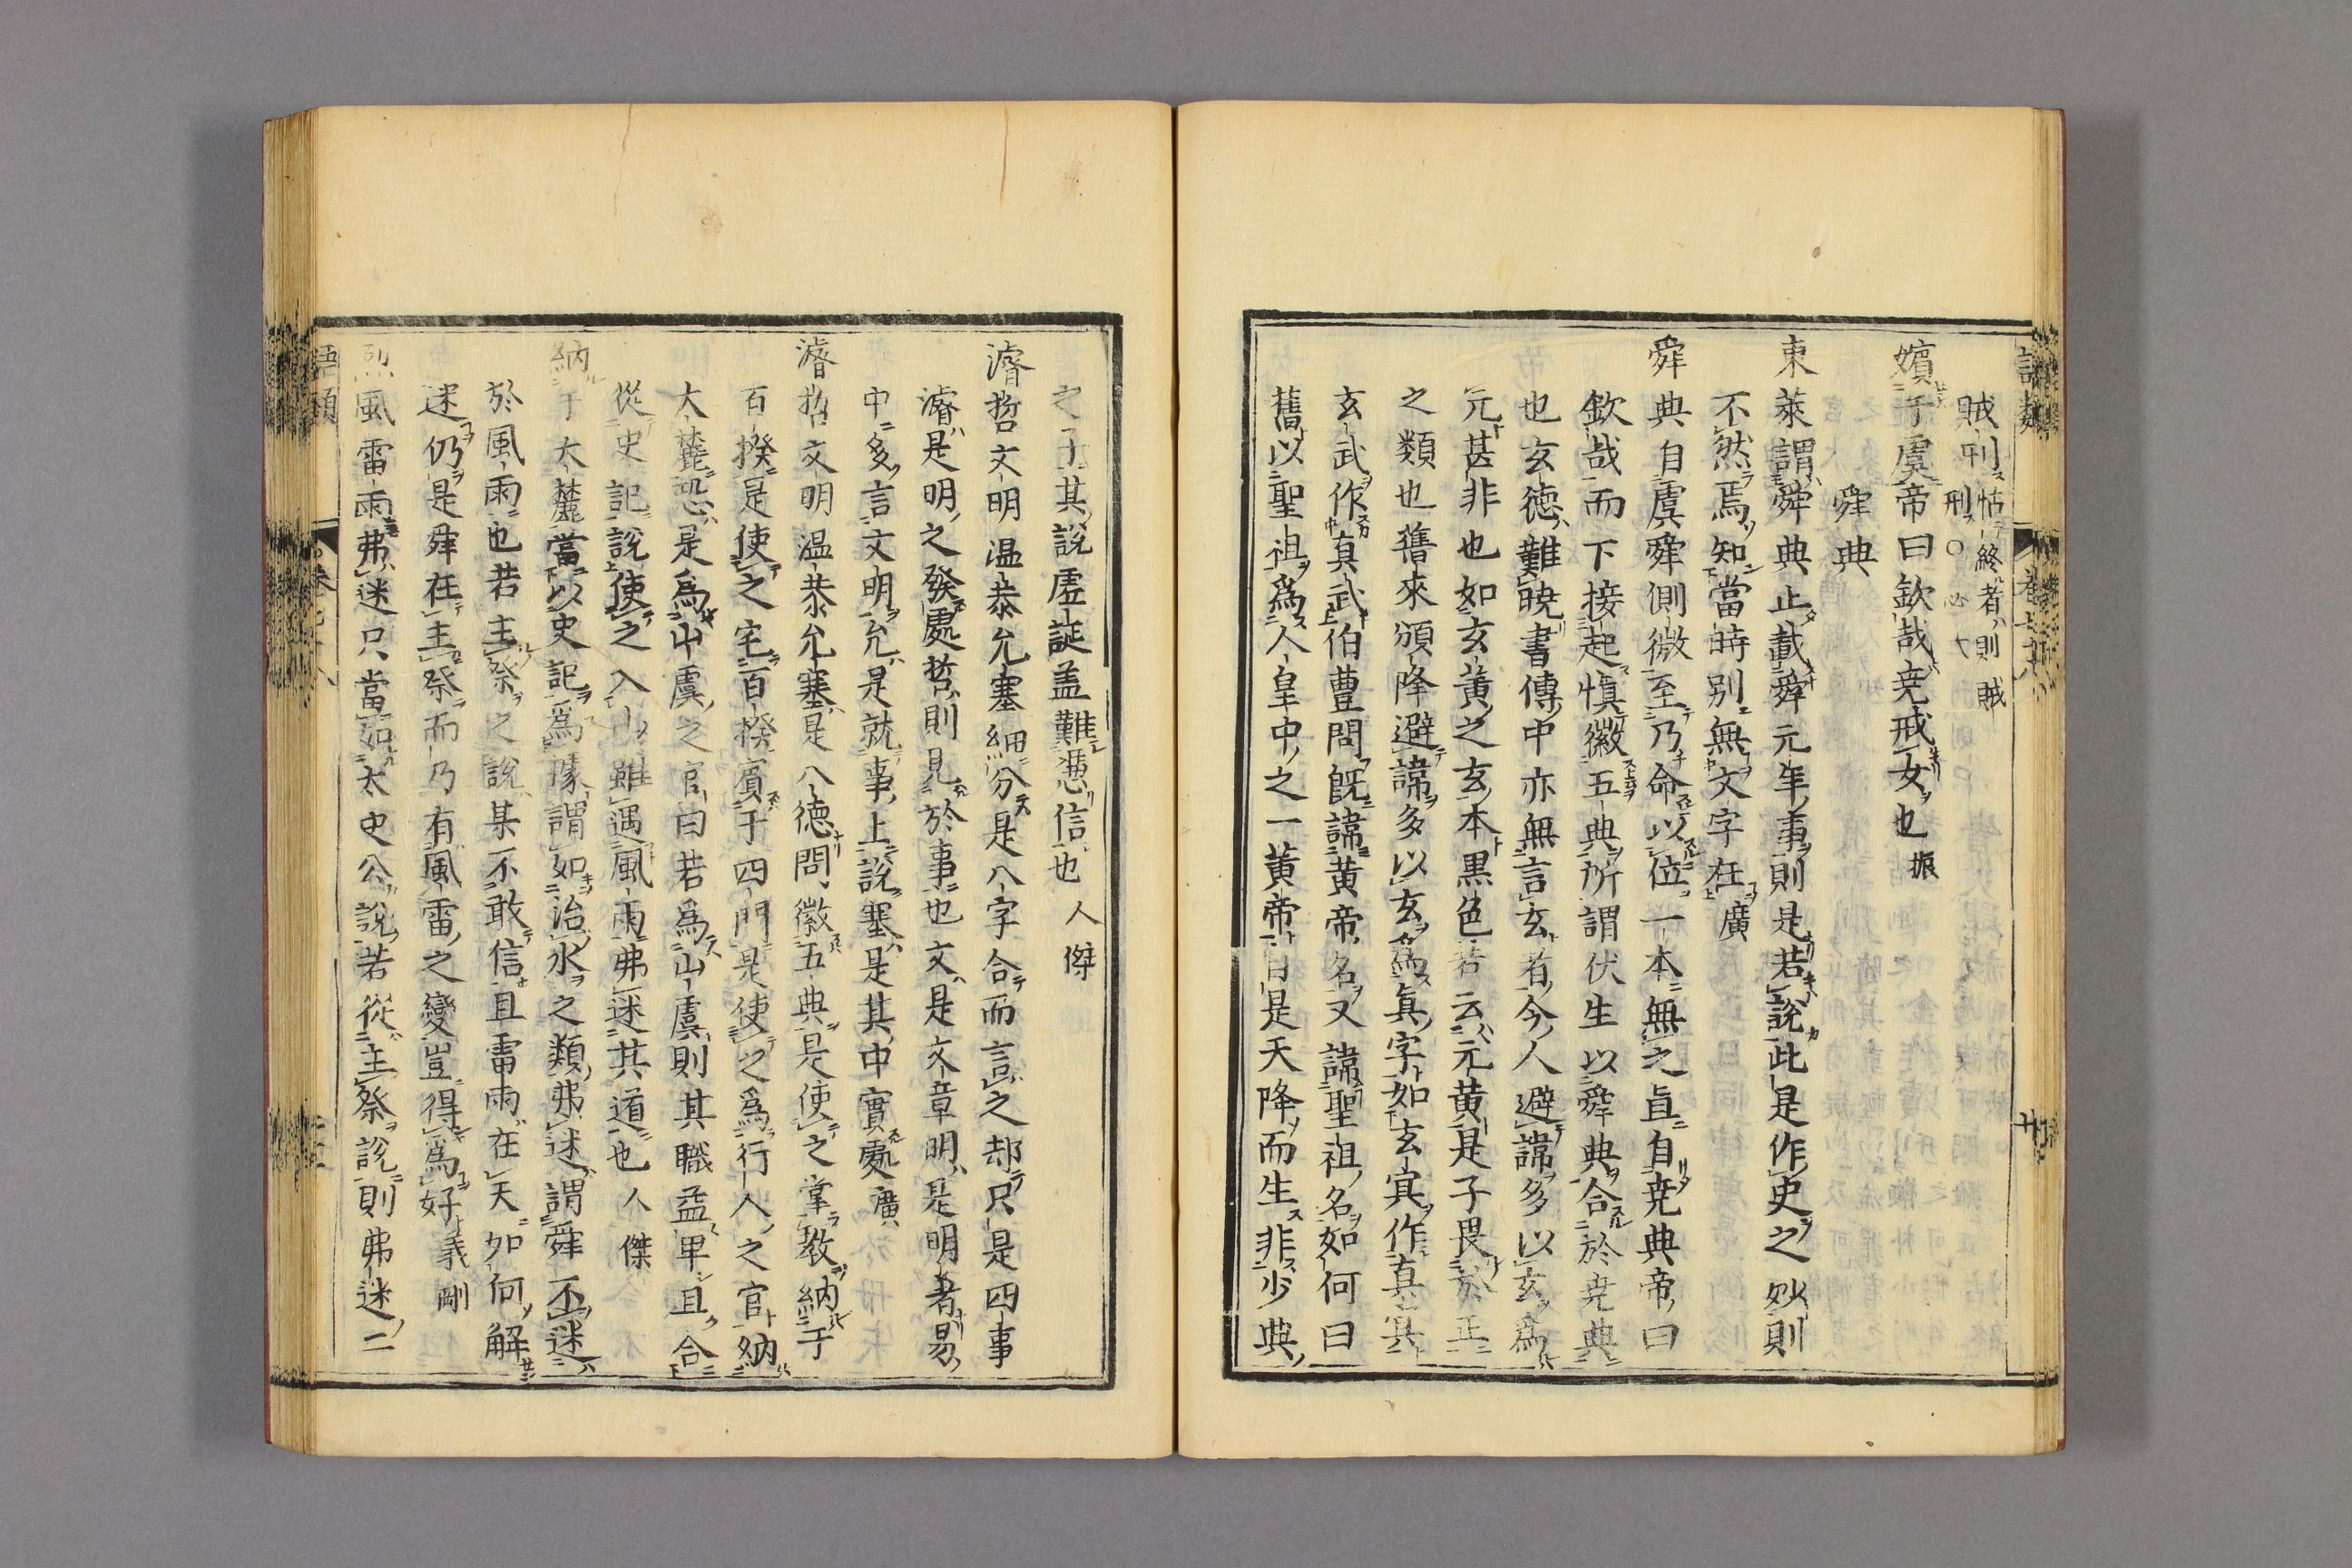 賊刑怙終者則賊
刑○必大
嬪于虞帝曰欽哉尭戒女也振
舜典
東萊謂舜典止載舜元年事則是若說此是作史之妙則
不然焉知當時别無文字在廣
舜典自虞舜側微至乃命以位一本無之直自尭典帝曰
欽哉而下接起慎徽五典所謂伏生以舜典合於尭典
也玄德難曉書傳中亦無言玄者今人避諱多以玄為
元甚非也如玄黃之玄本黑色若云元黃是子畏於正
之類也舊來頒降避諱多以玄為眞字如玄冥作真冥
玄武作真武伯豊問既諱黃帝名又諱聖祖名如何曰
舊以聖祖爲人皇中之一黃帝自是天降而生非少典
之子其說虛誕盖難憑信也人傑
濬哲文明温恭允塞細分是八字合而言之却只是四事
濬是明之發處哲則見於事也文是文章明是明著易
中多言文明允是就事上說塞是其中實處廣
濬哲文明温恭允塞是八德問徽五典是使之掌教納于
百揆是使之宅百揆賓于四門是使之爲行人之官納
大麓恐是爲山虞之官曰若爲山虞則其職益卑且合
從史記說使之入山雖遇風雨弗迷其道也人傑
納于大麓當以史記爲據謂如治水之類弗迷謂舜不迷
於風雨也若主祭之說某不敢信且雷雨在天如何解
迷仍是舜在主祭而乃有風雷之變豈得爲好義剛
烈風雷雨弗迷只當如太史公說若從主祭說則弗迷二
語類